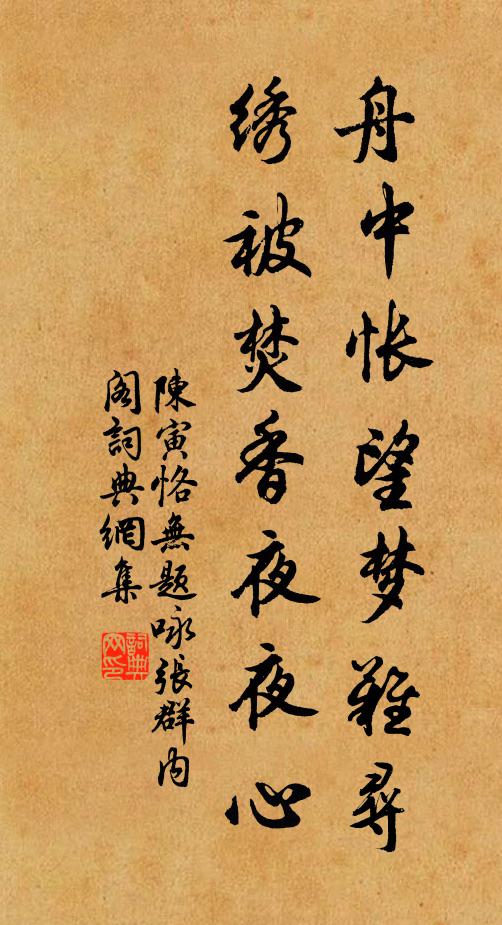 舟中怅望梦難尋
绣被焚香夜夜心
陳寅恪無题咏張群内
阁詞典網集
詞典網印